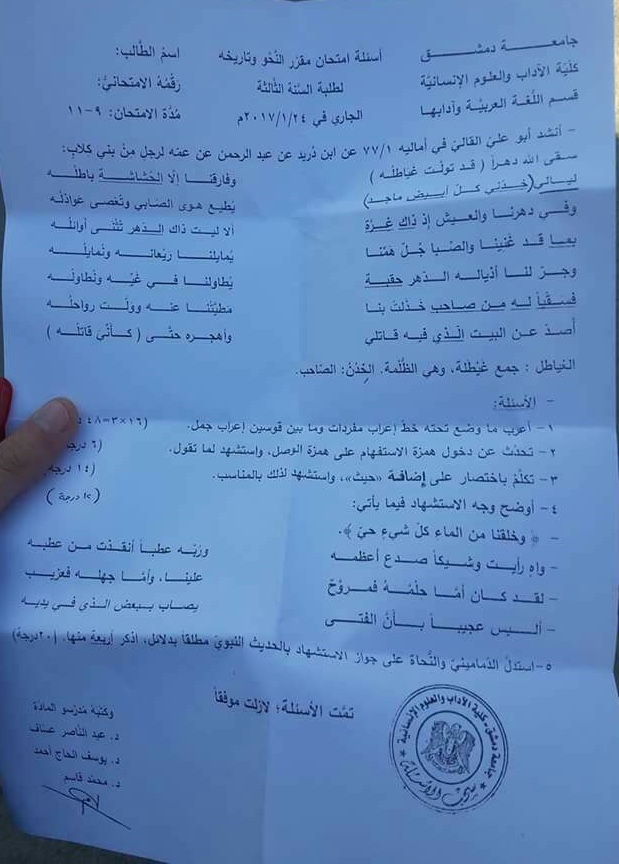 جامعة دمشق
كلية الآداب والعلوم الإنسانية
قسم اللغة العربية وآدابها
أسئلة امتحان مقرر النحو وتاريخه
لطلبة السنة الثالثة
الجاري في ٢٠١٧/١/٢٤م
اسم الطالب:
رقمه الامتحاني:
مدة الامتحان: ٩-١١
- أنشد أبو علي القالي في أماليه ٧٧/١ عن ابن دريد عن عبد الرحمن عن عمه لرجل من بني كلاب:
سقى الله دهراً ( قد تولت غياطله ) وفارقنا إلا الحشاشة باطله
ليالي (خدني كل أبيض ماجد) يطيع هوى الصابي وتعصى عواذله
وفي دهرنا والعيش إذ ذاك غرة ألا ليت ذاك الدهر تثنى أوائله
بما قد غنينا والصبا جل همنا يمايلنا ريعانه ونمايله
وجر لنا أذياله الدهر حقبة يطاولنا في غيه ونطاوله
فسقياً له من صاحب خذلت بنا مطيتنا عنه وولت رواحله
أصد عن البيت الذي فيه قاتلي وأهجره حتى ( كأني قاتله )
الغياطل : جمع غيطلة، وهي الظلمة. الخدن: الصاحب.
- الأسئلة:
١- أعرب ما وضع تحته خط إعراب مفردات وما بين قوسين إعراب جمل. (١٦×٣=٤٨
٢- تحدث عن دخول همزة الاستفهام على همزة الوصل، واستشهد لما تقول. (٦ درجة
٣- تكلم باختصار على إضافة «حيث»، واستشهد لذلك بالمناسب. (١٤ درجة
٤- أوضح وجه الاستشهاد فيما يأتي: (١٢ درجة )
- ﴿ وخلقنا من الماء كل شيء حي ﴾.
- واهٍ رأيت وشيكاً صدع أعظمه وربه عطباً أنقذت من عطبه
- لقد كان أما حلمه فمروح علينا، وأما جهله فعزيب
- أليس عجيباً بأن الفتى يصاب ببعض الذي في يديه
٥- استدل الدماميني والنحاة على جواز الاستشهاد بالحديث النبوي مطلقاً بدلائل، اذكر أربعة منها. (٢٠درجة)
تمت الأسئلة؛ لازلت موفقاً
وكتبه مدرسو المادة
د. عبد الناصر عساف
د. يوسف الحاج أحمد
د. محمد قاسم
جامعة دمشق - كلية الآداب والعلوم الإنسانية